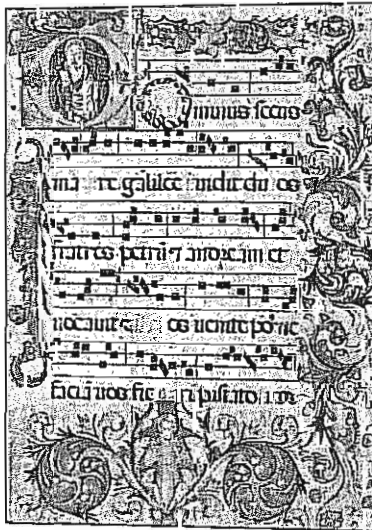 Ominus secus
mare galilee vidit duos
fratres petrū ⁊ andream et
vocavit eos venite post me
faciā vos fieri piscatores